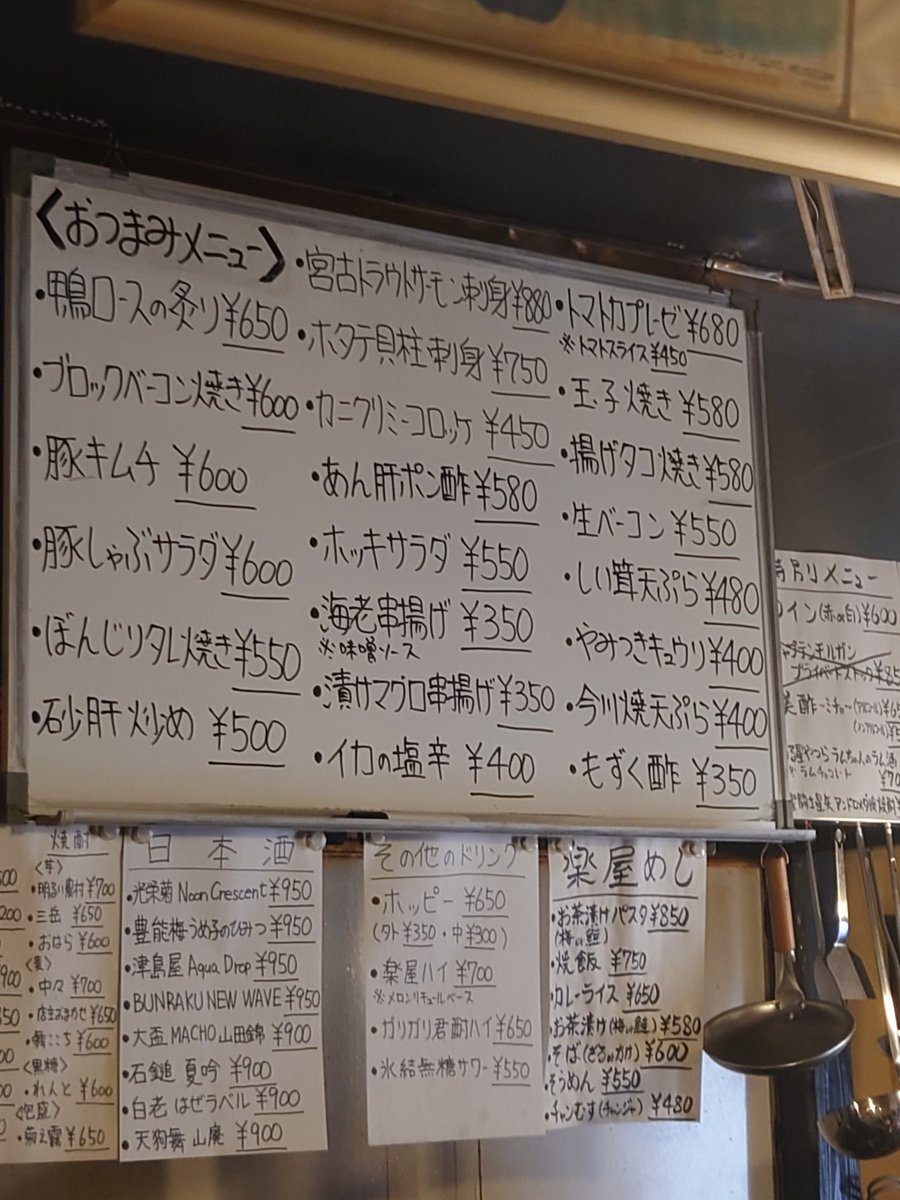 〈おつまみメニュー〉
・鴨ロースの炙り ¥650
・ブロックベーコン焼き ¥600
・豚キムチ ¥600
・豚しゃぶサラダ ¥600
・ぼんじりタレ焼き ¥550
・砂肝炒め ¥500
・宮古トラウトサーモン刺身 ¥880
・ホタテ貝柱刺身 ¥750
・カニクリミーコロッケ ¥450
・あん肝ポン酢 ¥580
・ホッキサラダ ¥550
・海老串揚げ ¥350
※味噌ソース
・漬サマグロ串揚げ ¥350
・イカの塩辛 ¥400
・トマトカプレーゼ ¥680
※トマトスライス ¥450
・玉子焼き ¥580
・揚げタコ焼き ¥580
・生ベーコン ¥550
・しい茸天ぷら ¥480
・やみつきキュウリ ¥400
・今川焼天ぷら ¥400
・もずく酢 ¥350
別メニュー
イン(赤or白) ¥600
プライベートストック ¥85
酢ーミチョー(アルコール) ¥65
(ノンアルコール) ¥5
屋やつらラムちゃんのラム酒
※ラムチョコレート ¥70
焼酎
〈芋〉
・明るい農村 ¥700
・三岳 ¥650
・おはら ¥600
〈麦〉
・中々 ¥700
・店主おまかせ ¥650
・舞ここち ¥600
〈黒糖〉
・れんと ¥600
・菊之露 ¥650
日本酒
・光栄菊 Noon Crescent ¥950
・豊能梅 うめ子のひみつ ¥950
・津島屋 Aqua Drop ¥950
・BUNRAKU NEW WAVE ¥950
・大盃 MACHO 山田錦 ¥900
・石鎚 夏吟 ¥900
・白老 はぜラベル ¥900
・天狗舞 山廃 ¥900
その他のドリンク
・ホッピー ¥650
(外 ¥350・中 ¥300)
・楽屋ハイ ¥700
※メロンリキュールベース
・ガリガリ君酎ハイ ¥650
・氷結無糖サワー ¥550
楽屋めし
・お茶漬けパスタ ¥850
(梅or鮭)
・焼飯 ¥750
・カレーライス ¥650
・お茶漬け(梅or鮭) ¥580
・そば(ざるorカケ) ¥600
・そうめん ¥550
・チャンむす(チャンジャ) ¥480